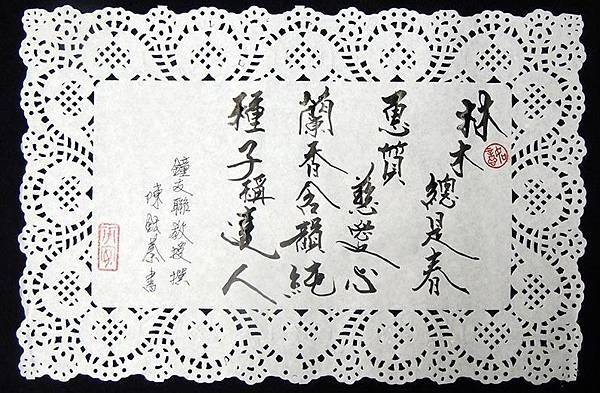 林木總是春
惠質慈愛心
蘭香含韻純
種子稱達人
鐘友聯教授撰
陳 書